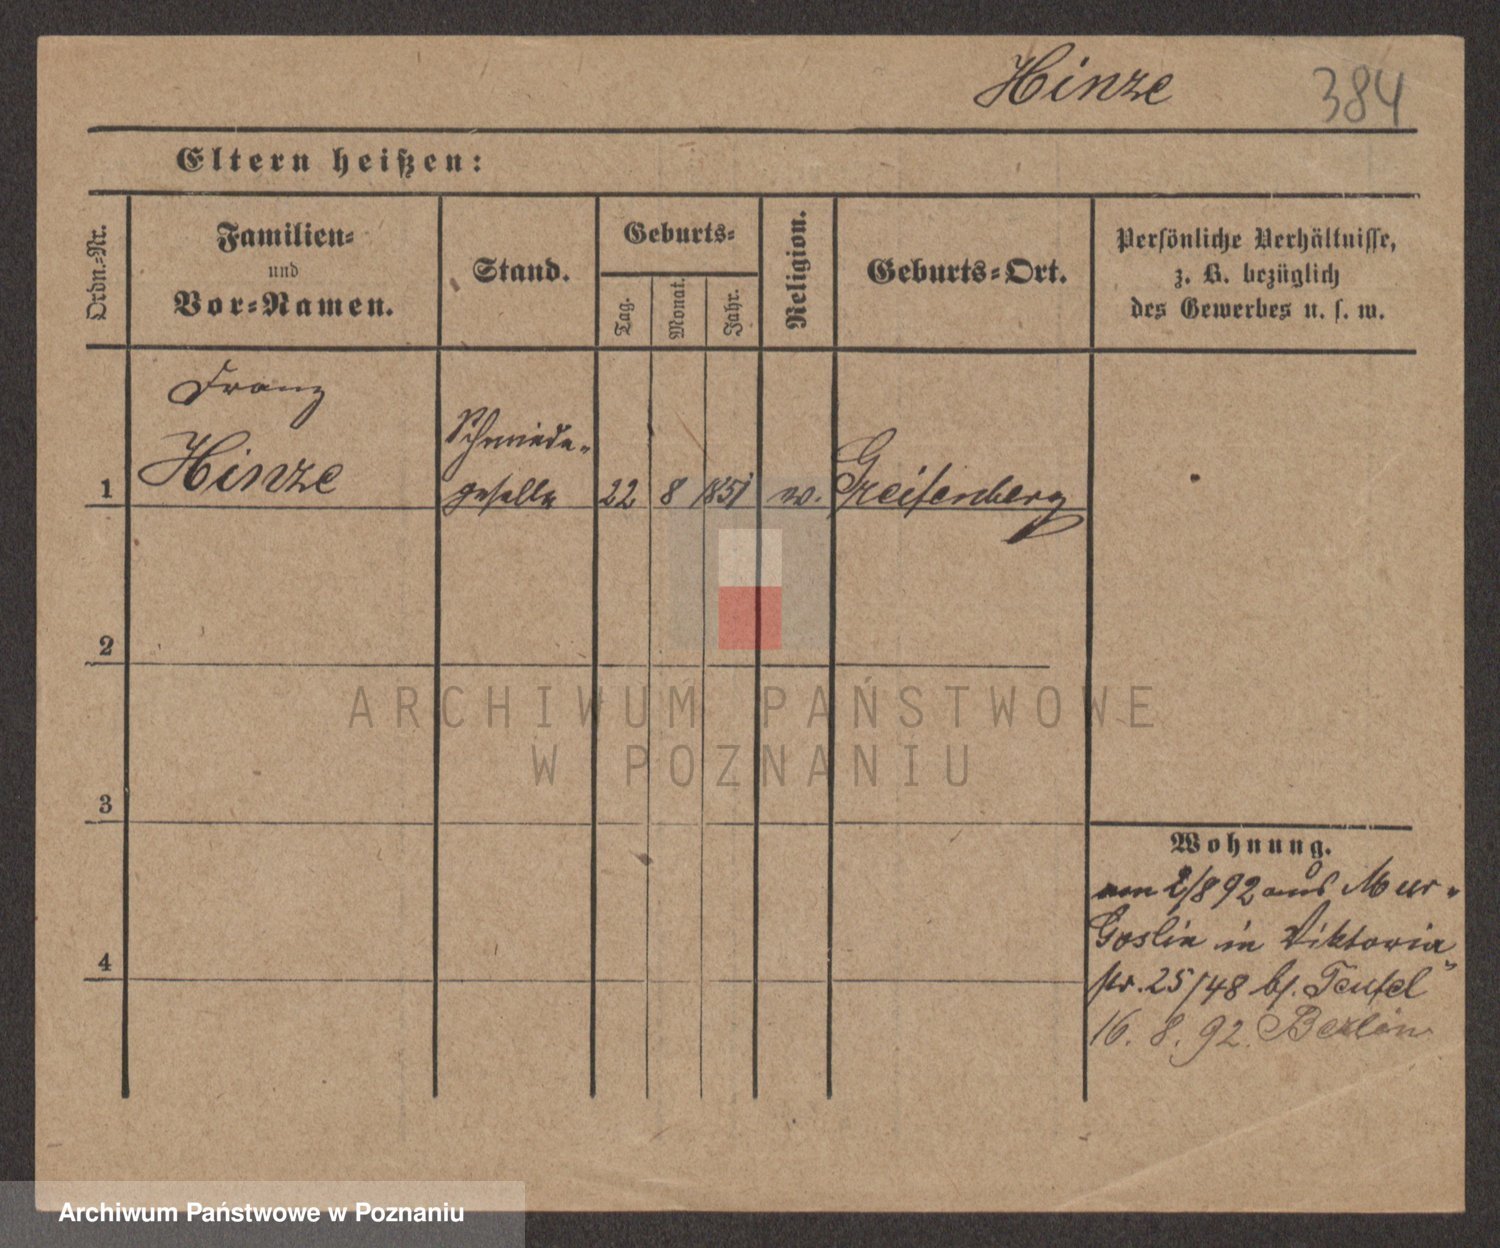 Hinze 384
Eltern heißen:
Ordn.-Nr.
Familien-
und
Vor-Namen.
Stand.
Geburts-
Tag.
Monat.
Jahr.
Religion.
Geburts-Ort.
Persönliche Verhältnisse,
z. B. bezüglich
des Gewerbes u. s. w.
Franz
Schmiede-
1 Hinze geselle 22 8 1851 Greifenberg
2
ARCHIWUM PAŃSTWOWE
W POZNANIU
3
Wohnung.
/8 92 aus Mur-
Goslin in Viktoria
4
str. 25/48 bf. Teufel
16. 8. 92. Berlin
Archiwum Państwowe w Poznaniu